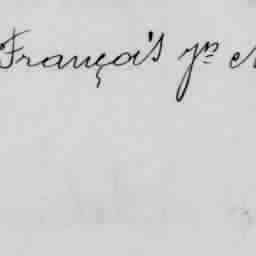 François Jn